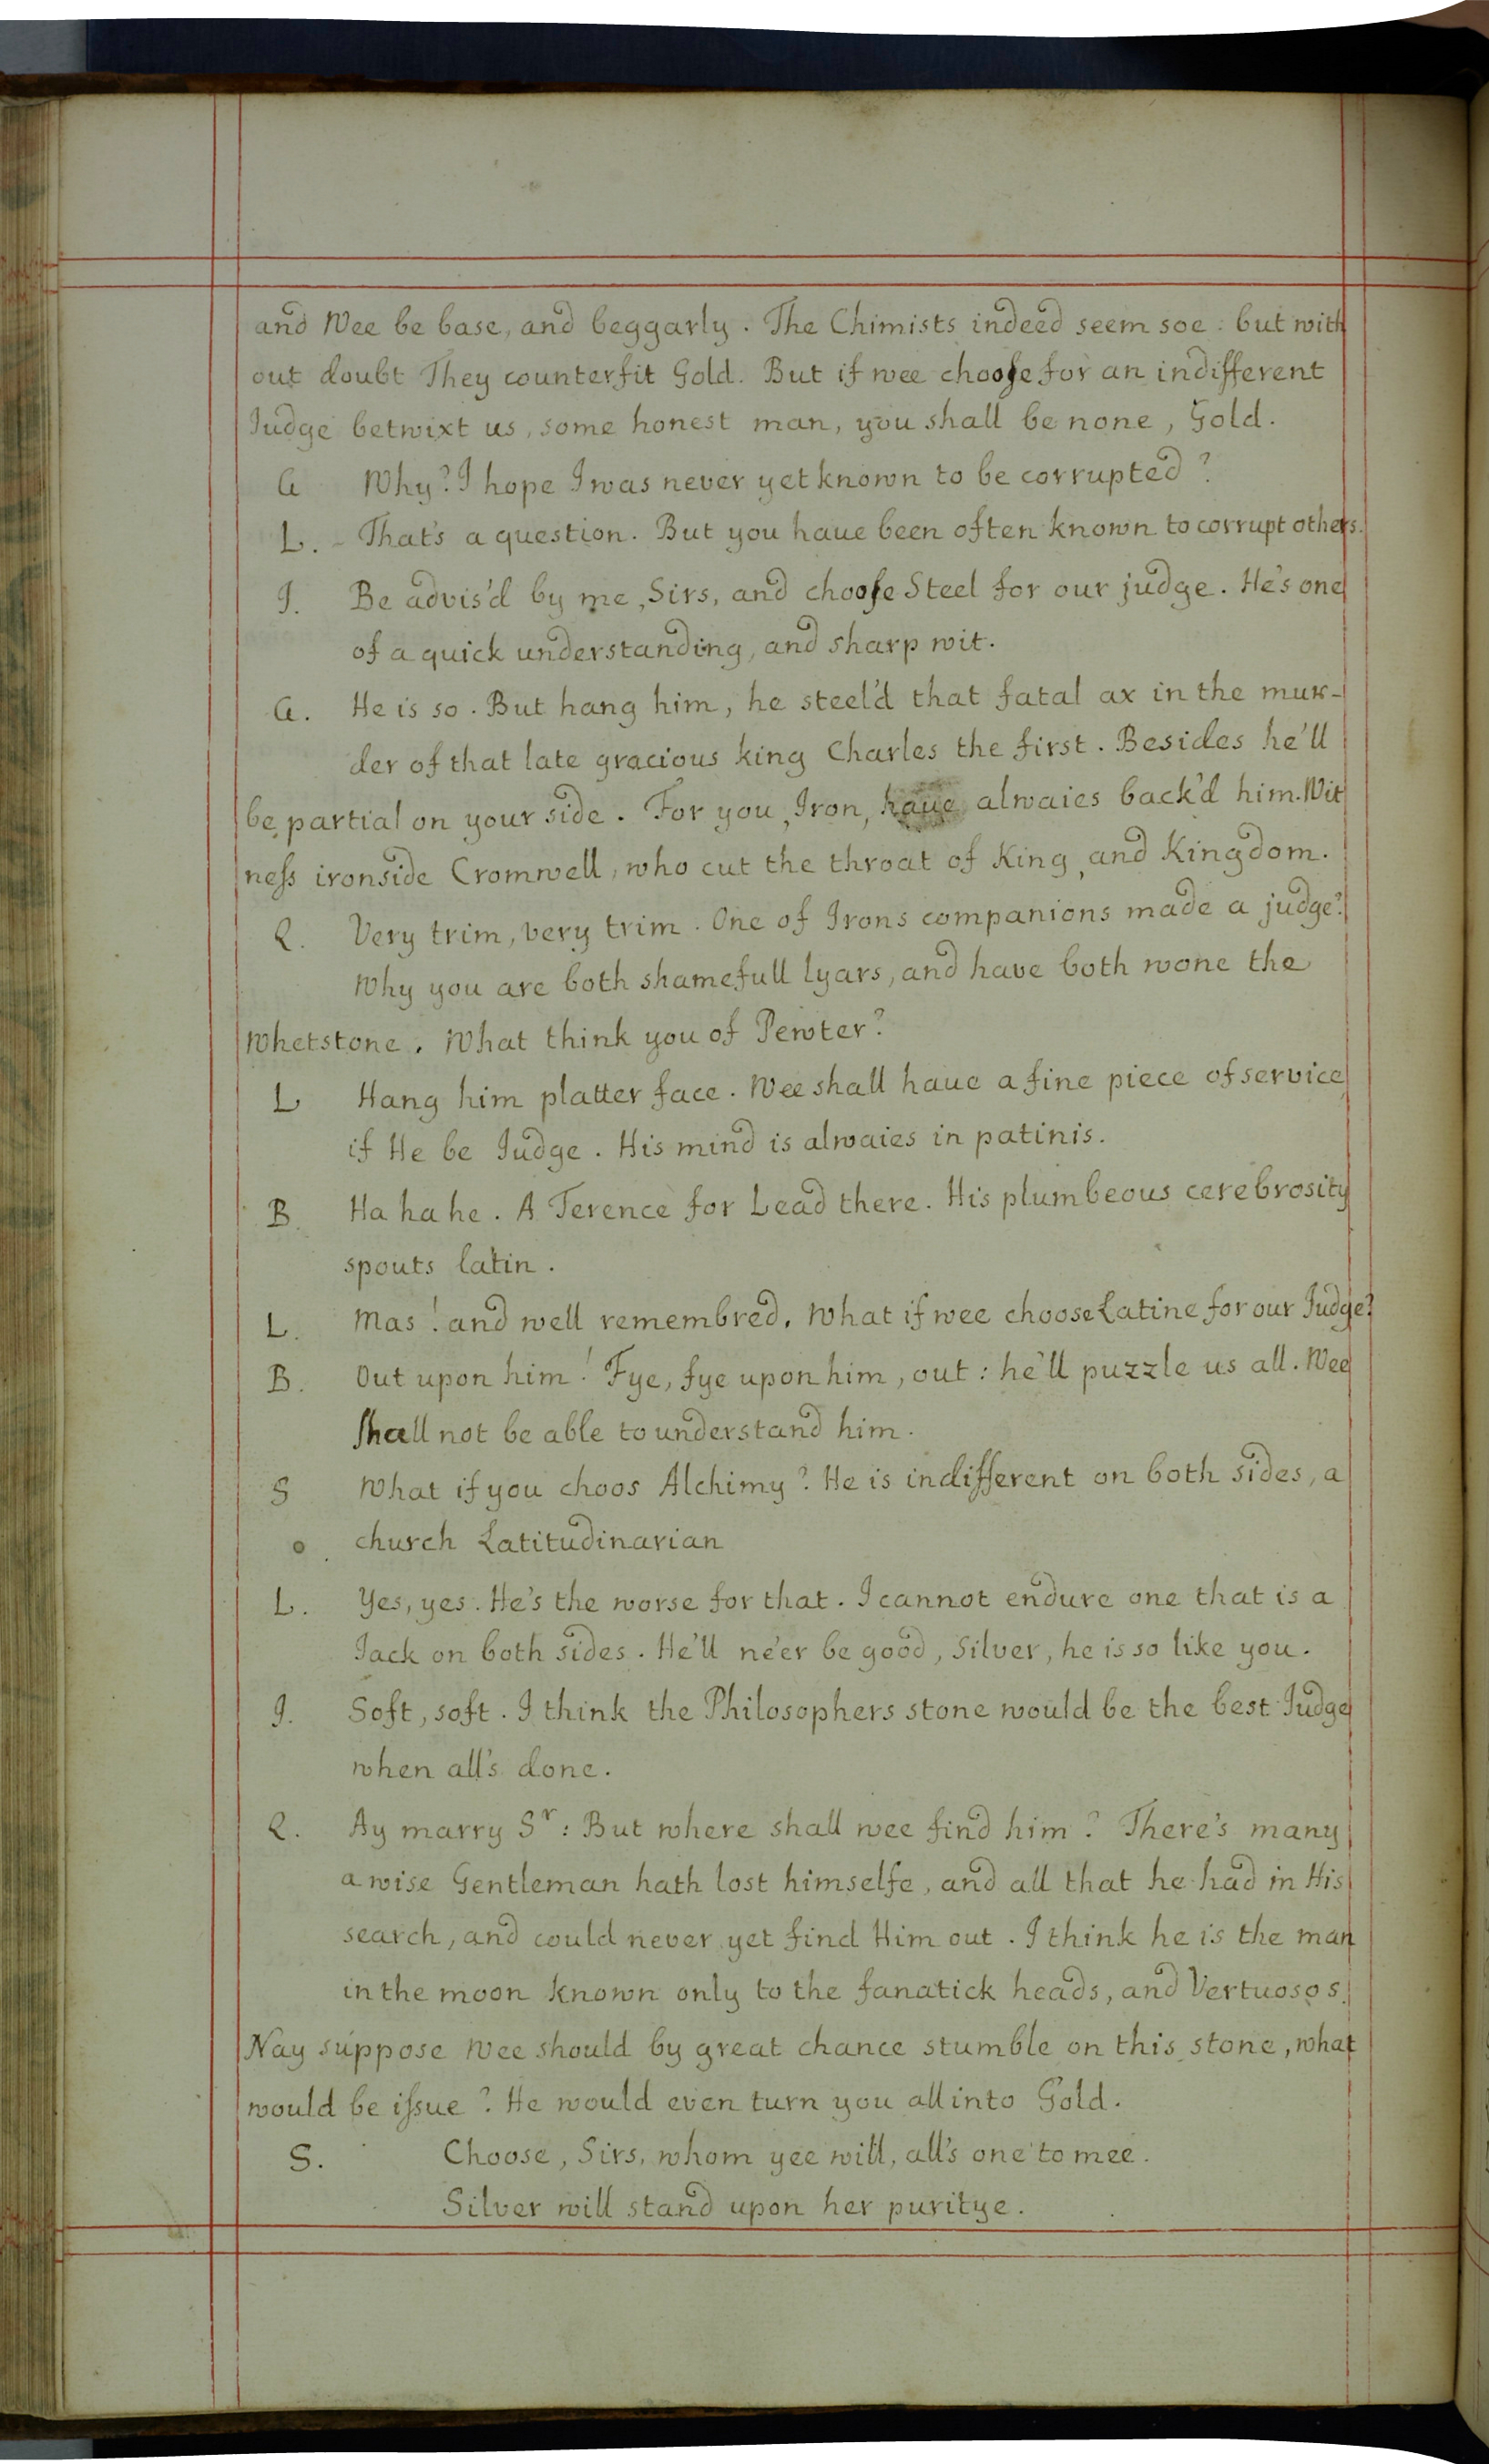 and Wee be base, and beggarly. The Chimists indeed seem soe: but with
out doubt They counterfit Gold. But if wee chooſe for an indifferent
Iudge betwixt us, some honest man, you shall be none, Gold.
G Why? I hope I was never yet known to be corrupted?
L. That's a question. But you haue been often known to corrupt others.
I. Be advis'd by me, Sirs, and chooſe Steel for our judge. He's one
of a quick understanding, and sharp wit.
G. He is so. But hang him, he steel'd that fatal ax in the mur-
der of that late gracious king Charles the first. Besides he'll
be partial on your side. For you, Iron, haue alwaies back'd him. Wit
neſs ironside Cromwell, who cut the throat of King, and Kingdom.
Q. Very trim, very trim. One of Irons companions made a judge?
Why you are both shamefull lyars, and have both wone the
Whetstone. What think you of Pewter?
L Hang him platter face. Wee shall haue a fine piece of service,
if He be Iudge. His mind is alwaies in patinis.
B. Ha ha he. A Terence for Lead there. His plumbeous cerebrosity
spouts latin.
L. Mas! and well remembred. What if wee choose Latine for our Iudge?
B. Out upon him! Fye, fye upon him, out: he'll puzzle us all. Wee
ſhall not be able to understand him.
S What if you choos Alchimy? He is indifferent on both sides, a
church Latitudinarian
L. Yes, yes. He's the worse for that. I cannot endure one that is a
Iack on both sides. He'll ne'er be good, Silver, he is so like you.
I. Soft, soft. I think the Philosophers stone would be the best Iudge
when all's done.
Q. Ay marry Sr: But where shall wee find him? There's many
a wise Gentleman hath lost himselfe, and all that he had in His
search, and could never yet find Him out. I think he is the man
in the moon known only to the fanatick heads, and Vertuosos.
Nay suppose Wee should by great chance stumble on this stone, what
would be iſsue? He would even turn you all into Gold.
S. Choose, Sirs, whom yee will, all's one to mee.
Silver will stand upon her puritye.